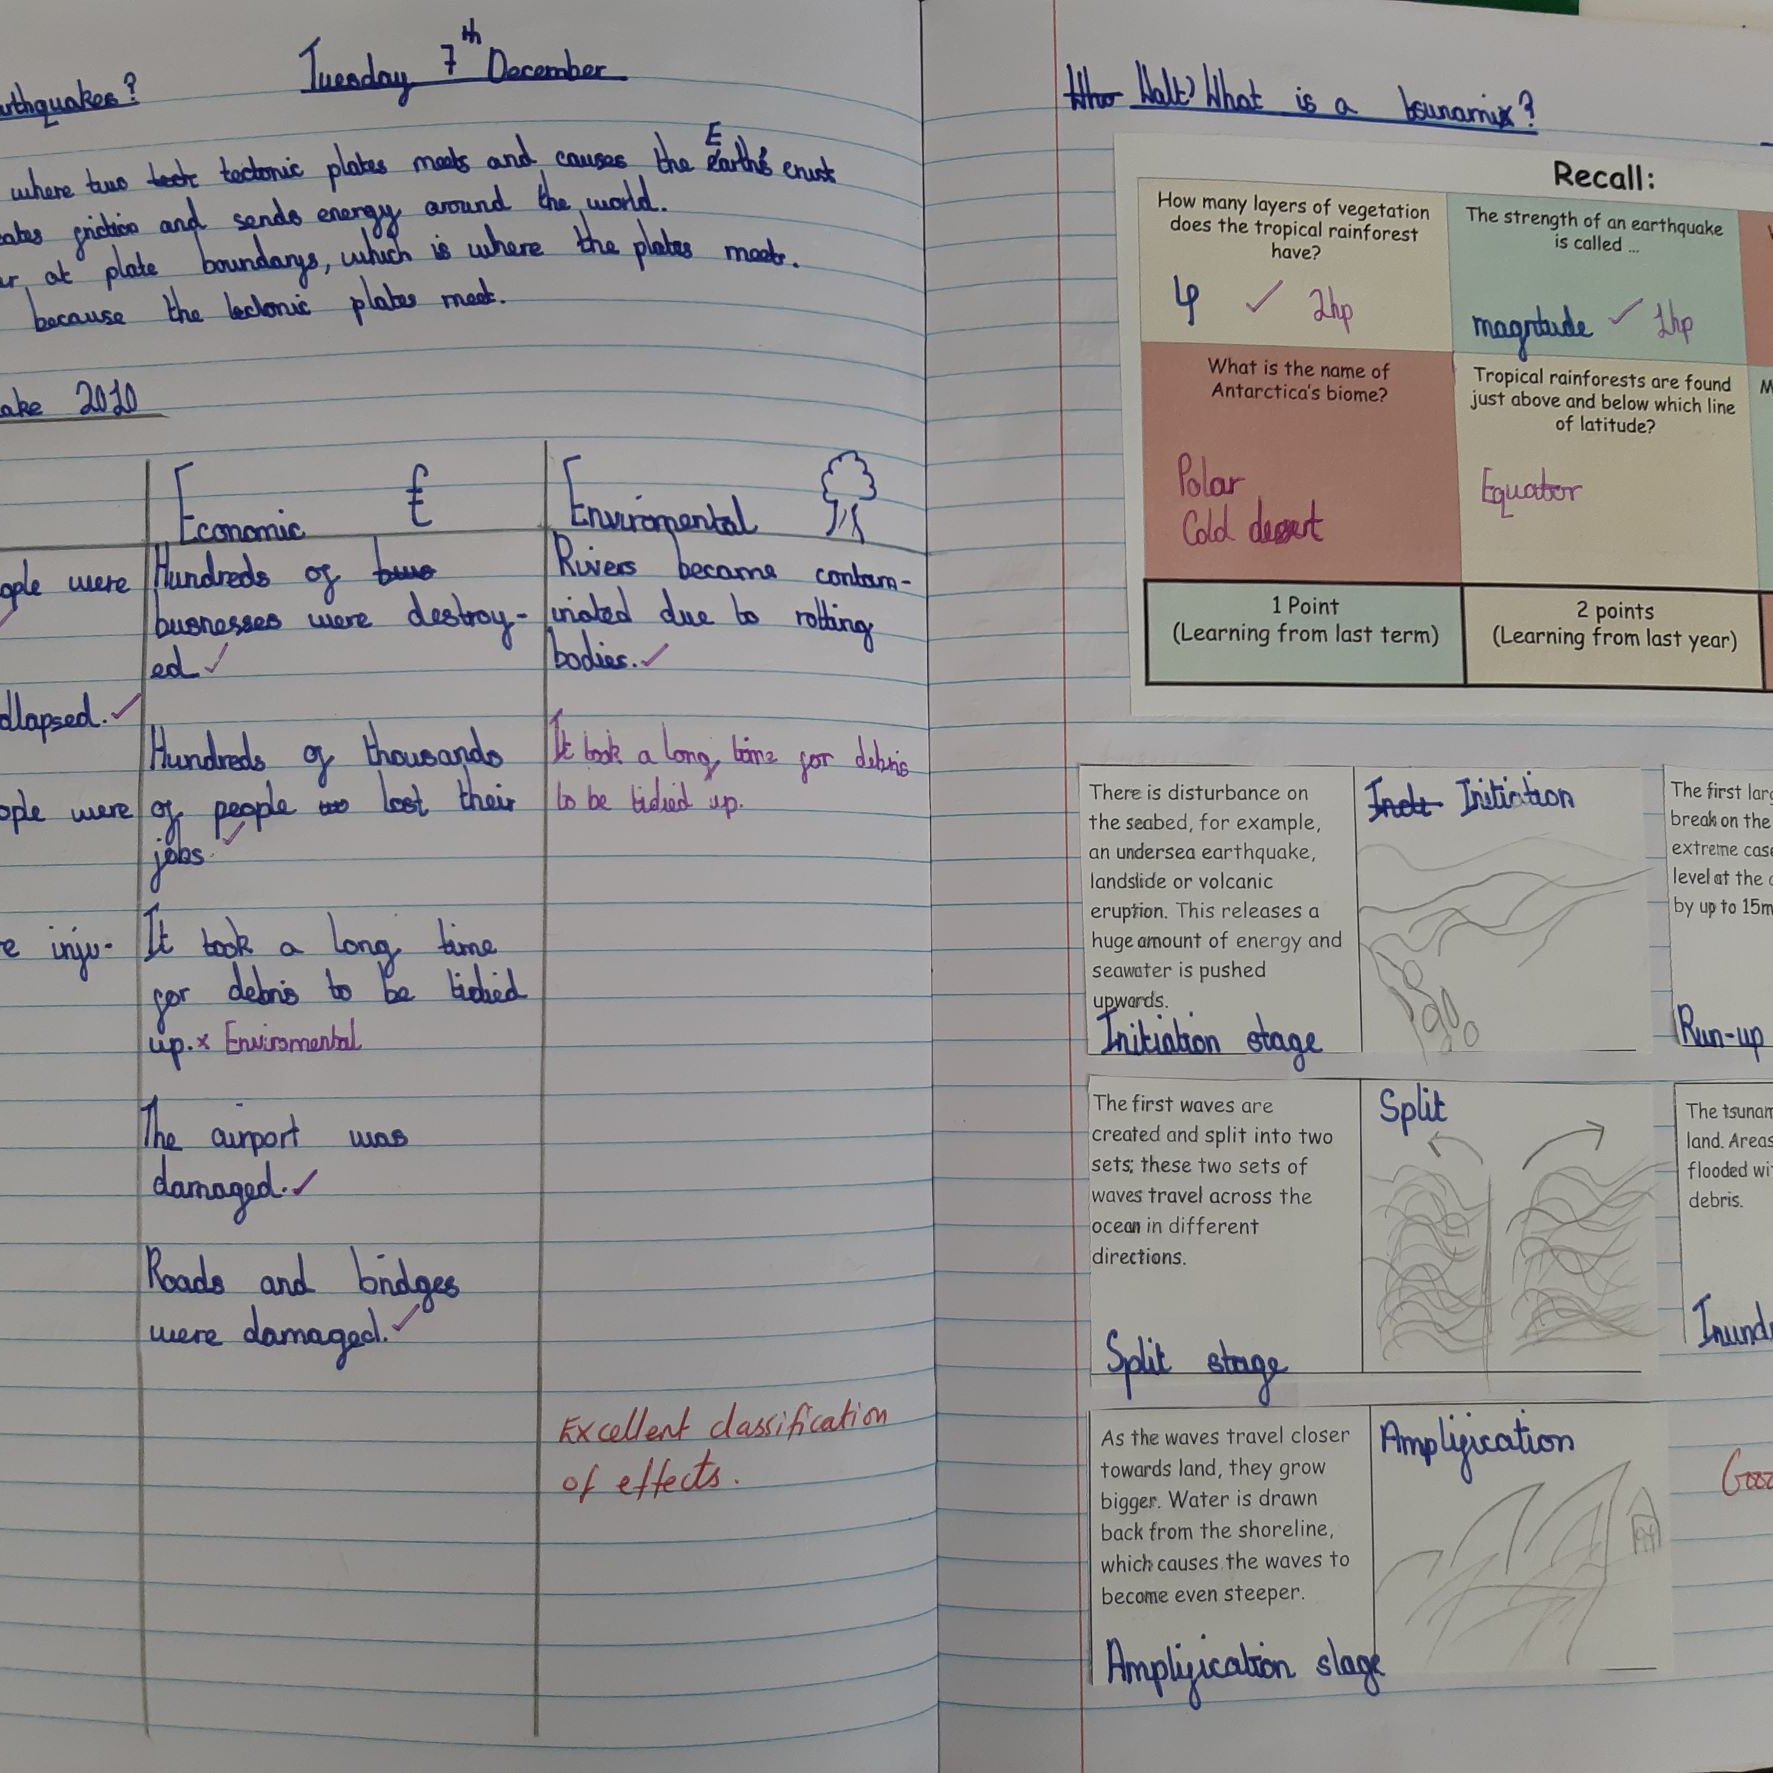 Tuesday 7th December
earthquakes?
where two tect tectonic plates meets and causes the Earth's crust
friction and sends energy around the world.
at plate boundarys, which is where the plates meet.
because the tectonic plates meet.
2010
Economic £
Hundreds of bus
businesses were destroy-
ed ✓
Hundreds of thousands
of people lost their
jobs. ✓
It took a long time
for debris to be tidied
up. x Enviromental
The airport was
damaged. ✓
Roads and bridges
were damaged. ✓
Enviromental
Rivers became contam-
inated due to rotting
bodies. ✓
It took a long time for debris
to be tidied up.
Excellent classification
of effects.
people were
collapsed. ✓
people were
inju-
Who Walt? What is a tsunami?
Recall:
How many layers of vegetation
does the tropical rainforest
have?
4 ✓ 2hp
The strength of an earthquake
is called ...
magntude ✓ 1hp
What is the name of
Antarctica's biome?
Polar
Cold desert
Tropical rainforests are found
just above and below which line
of latitude?
Equator
1 Point
(Learning from last term)
2 points
(Learning from last year)
There is disturbance on
the seabed, for example,
an undersea earthquake,
landslide or volcanic
eruption. This releases a
huge amount of energy and
seawater is pushed
upwards.
Initiation stage
Initiation
The first waves are
created and split into two
sets; these two sets of
waves travel across the
ocean in different
directions.
Split stage
Split
As the waves travel closer
towards land, they grow
bigger. Water is drawn
back from the shoreline,
which causes the waves to
become even steeper.
Amplification stage
Amplification
The first
break on the
extreme
level at the
by up to 15m
Run-up
The
land. Areas
flooded
debris.